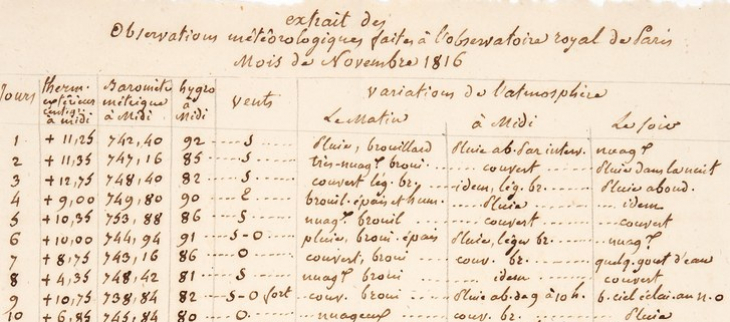 extrait des
Observations météorologiques faites à l'observatoire royal de Paris
Mois de Novembre 1816
Jours therm. extérieur centig. à midi Baromètre métrique à Midi hygro à Midi vents variations de l'atmosphère
Le Matin à Midi Le Soir
1 + 11,25 742,40 92 S pluie, brouillard pluie ab. par interv. nuagx
2 + 11,35 747,16 85 S très-nuagx broui. couvert pluie dans la nuit
3 + 12,75 748,40 82 S couvert lég. br. idem, lég. br. pluie abond.
4 + 9,00 749,80 90 E brouil. épais et hum. pluie idem
5 + 10,35 753,88 86 S nuagx brouil couvert couvert
6 + 10,00 744,94 91 S-O pluie, broui. épais pluie, léger br. nuagx
7 + 8,75 743,16 86 O couvert, broui couv. br. quelq. gout d'eau
8 + 4,35 748,42 81 S nuagx broui idem couvert
9 + 10,75 738,84 82 S-O fort couv. broui pluie ab. de 9 à 10 h. b. ciel éclai. au n.o
10 + 6,85 745,84 80 O. nuageux couv. br. pluie